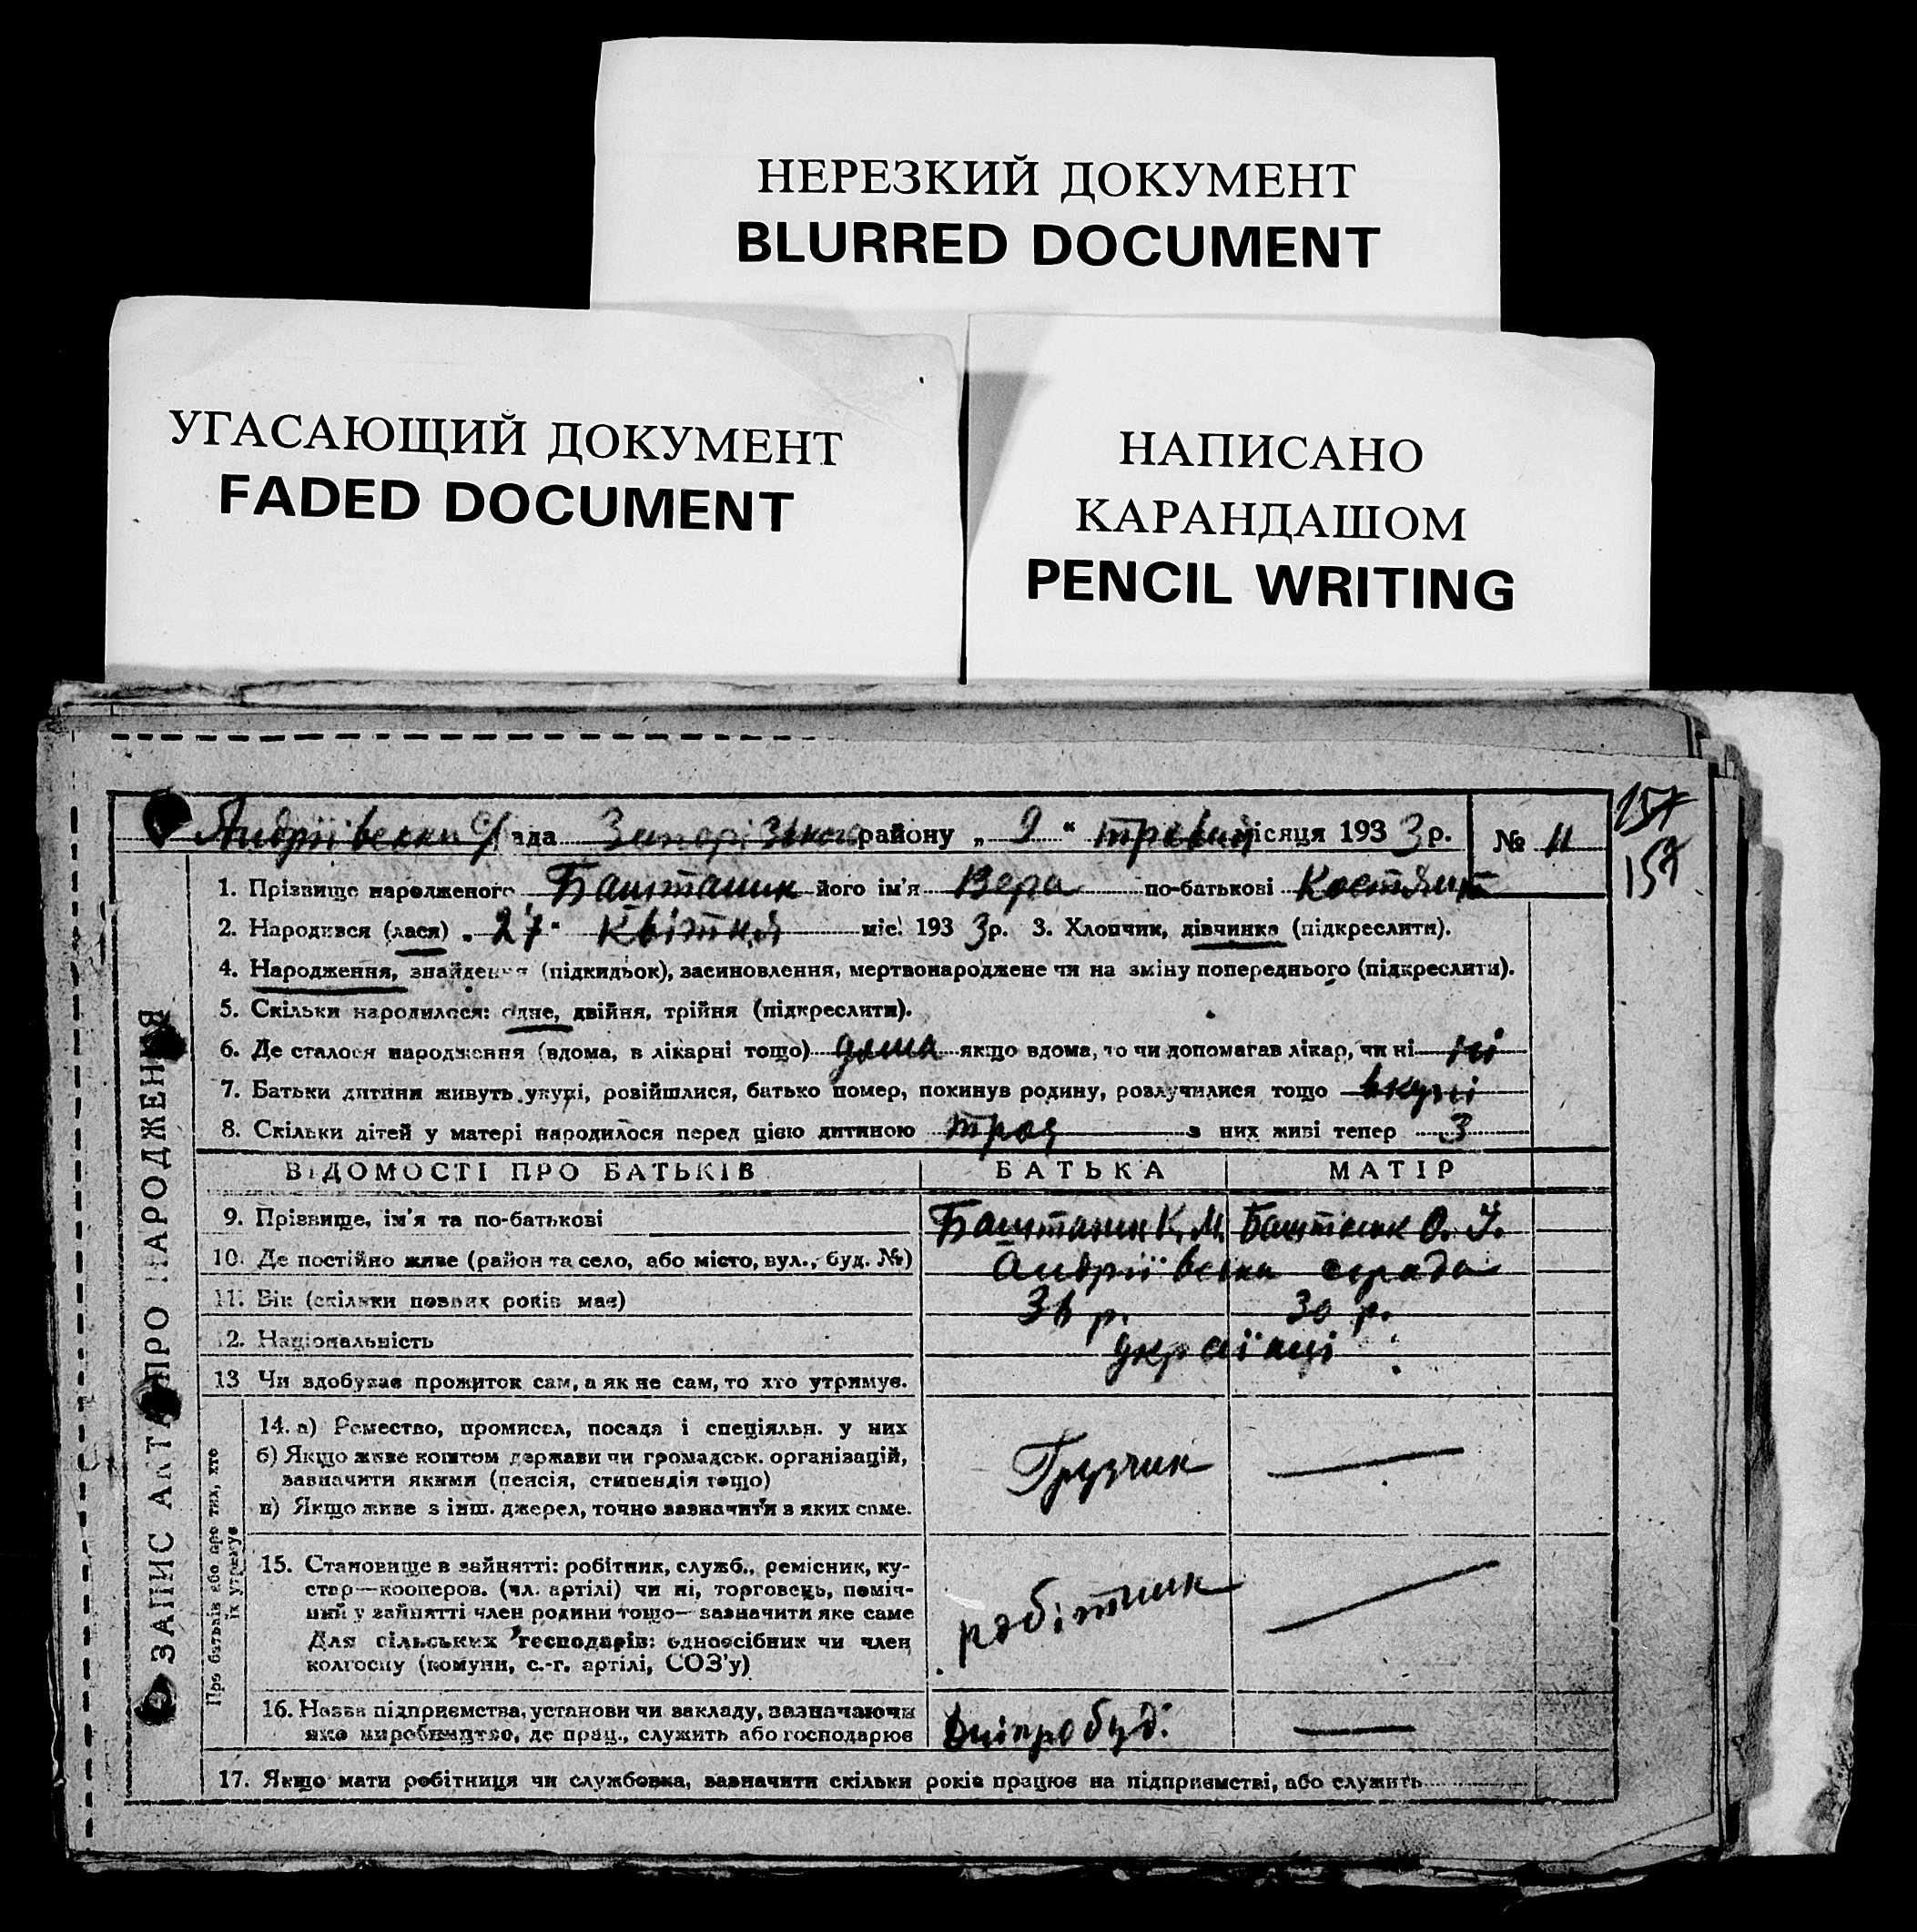 НЕРЕЗКИЙ ДОКУМЕНТ
BLURRED DOCUMENT
УГАСАЮЩИЙ ДОКУМЕНТ
FADED DOCUMENT
НАПИСАНО
КАРАНДАШОМ
PENCIL WRITING
157
157
Андріївська с/рада Запорізького району „ 9 “ травня місяця 1933 р. № 11
ЗАПИС АКТА ПРО НАРОДЖЕННЯ
1. Прізвище народженого Баштаник його ім'я Вера по-батькові
2. Народився (лася) „ 27 “ Квітня міс. 1933 р. 3. Хлопчик, дівчинка (підкреслити).
4. Народження, знайдення (підкидьок), засиновлення, мертвонароджене чи на зміну попереднього (підкреслити).
5. Скільки народилося: одне, двійня, трійня (підкреслити).
6. Де сталося народження (вдома, в лікарні тощо) дома якщо вдома, то чи допомагав лікар, чи ні ні
7. Батьки дитини живуть укупі, розійшлися, батько помер, покинув родину, розлучилися тощо вкупі
8. Скільки дітей у матері народилося перед цією дитиною троя з них живі тепер 3
ВІДОМОСТІ ПРО БАТЬКІВ БАТЬКА МАТІР
9. Прізвище, ім'я та по-батькові Баштаник К. М. Баштаник О. Й.
10. Де постійно живе (район та село, або місто, вул., буд. №) Андріївська с/рада
11. Вік (скільки повних років має) 36 р. 30 р.
12. Національність українці
13 Чи здобуває прожиток сам, а як не сам, то хто утримує.
Про батьків або про тих, хто
їх утримує
14. а) Ремество, промисел, посада і спеціяльн. у них
б) Якщо живе коштом держави чи громадськ. організацій,
зазначити якими (пенсія, стипендія тощо)
в) Якщо живе з інш. джерел, точно зазначити з яких саме.
Грузчик —
15. Становище в зайнятті: робітник, служб., ремісник, ку-
стар—кооперов. (чл. артілі) чи ні, торговець, поміч-
ний у зайнятті член родини тощо— зазначити яке саме
Для сільських господарів: одноосібник чи член
колгоспу (комуни, с.-г. артілі, СОЗ'у)
робітник —
16. Назва підприємства, установи чи закладу, зазначаючи
яке виробництво, де прац., служить або господарює
Дніпробуд. —
17. Якщо мати робітниця чи службовка, зазначити скільки років працює на підприємстві, або служить